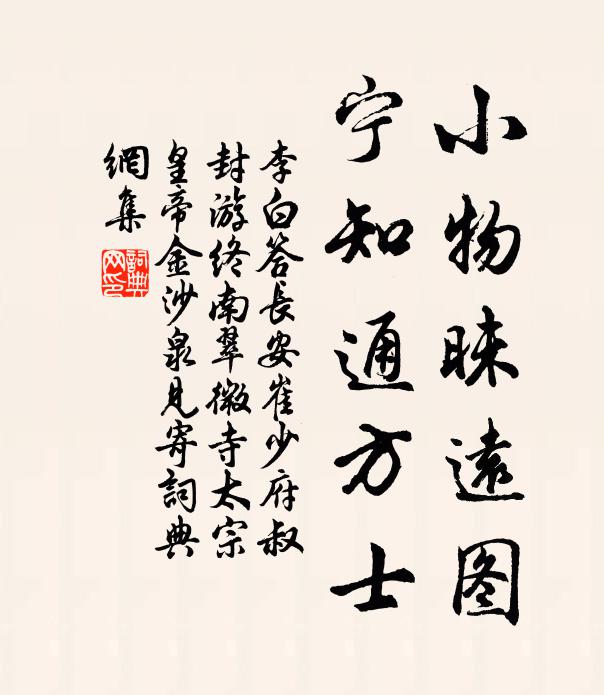 小物昧遠图
宁知通方士
李白答長安崔少府叔
封游终南翠微寺太宗
皇帝金沙泉見寄詞典
網集
詞典
网印